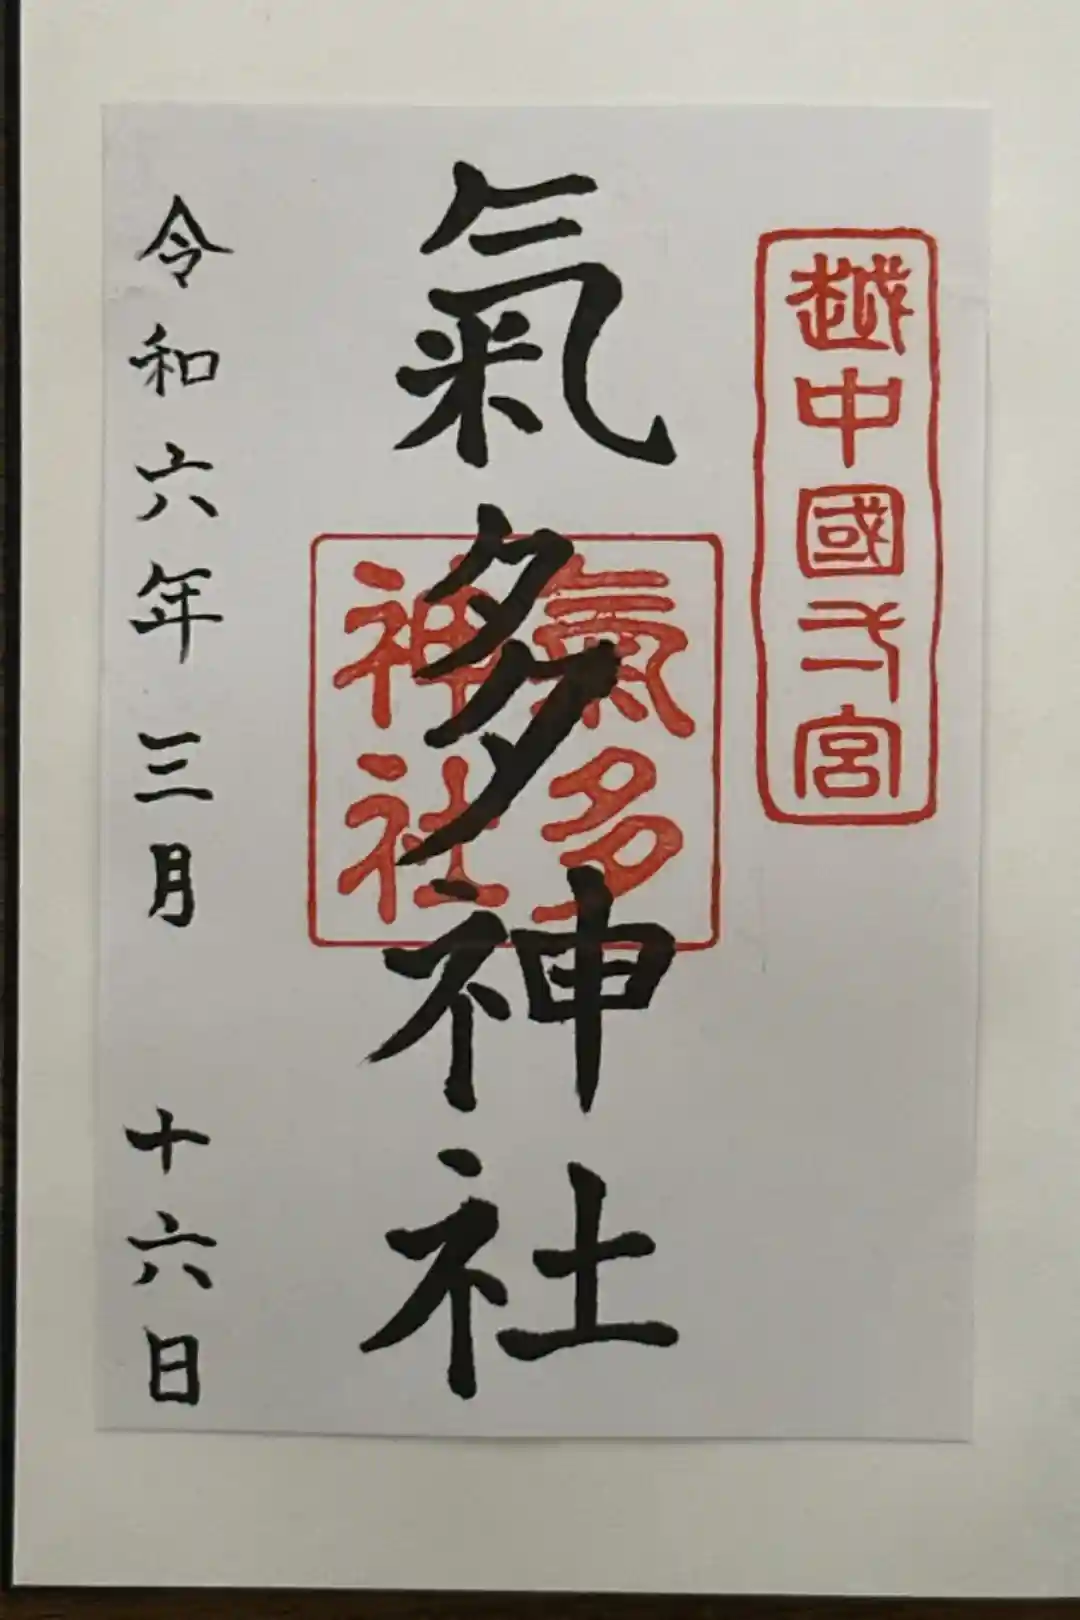 越中國弌宮
氣多神社
氣多
神社
令和六年三月 十六日